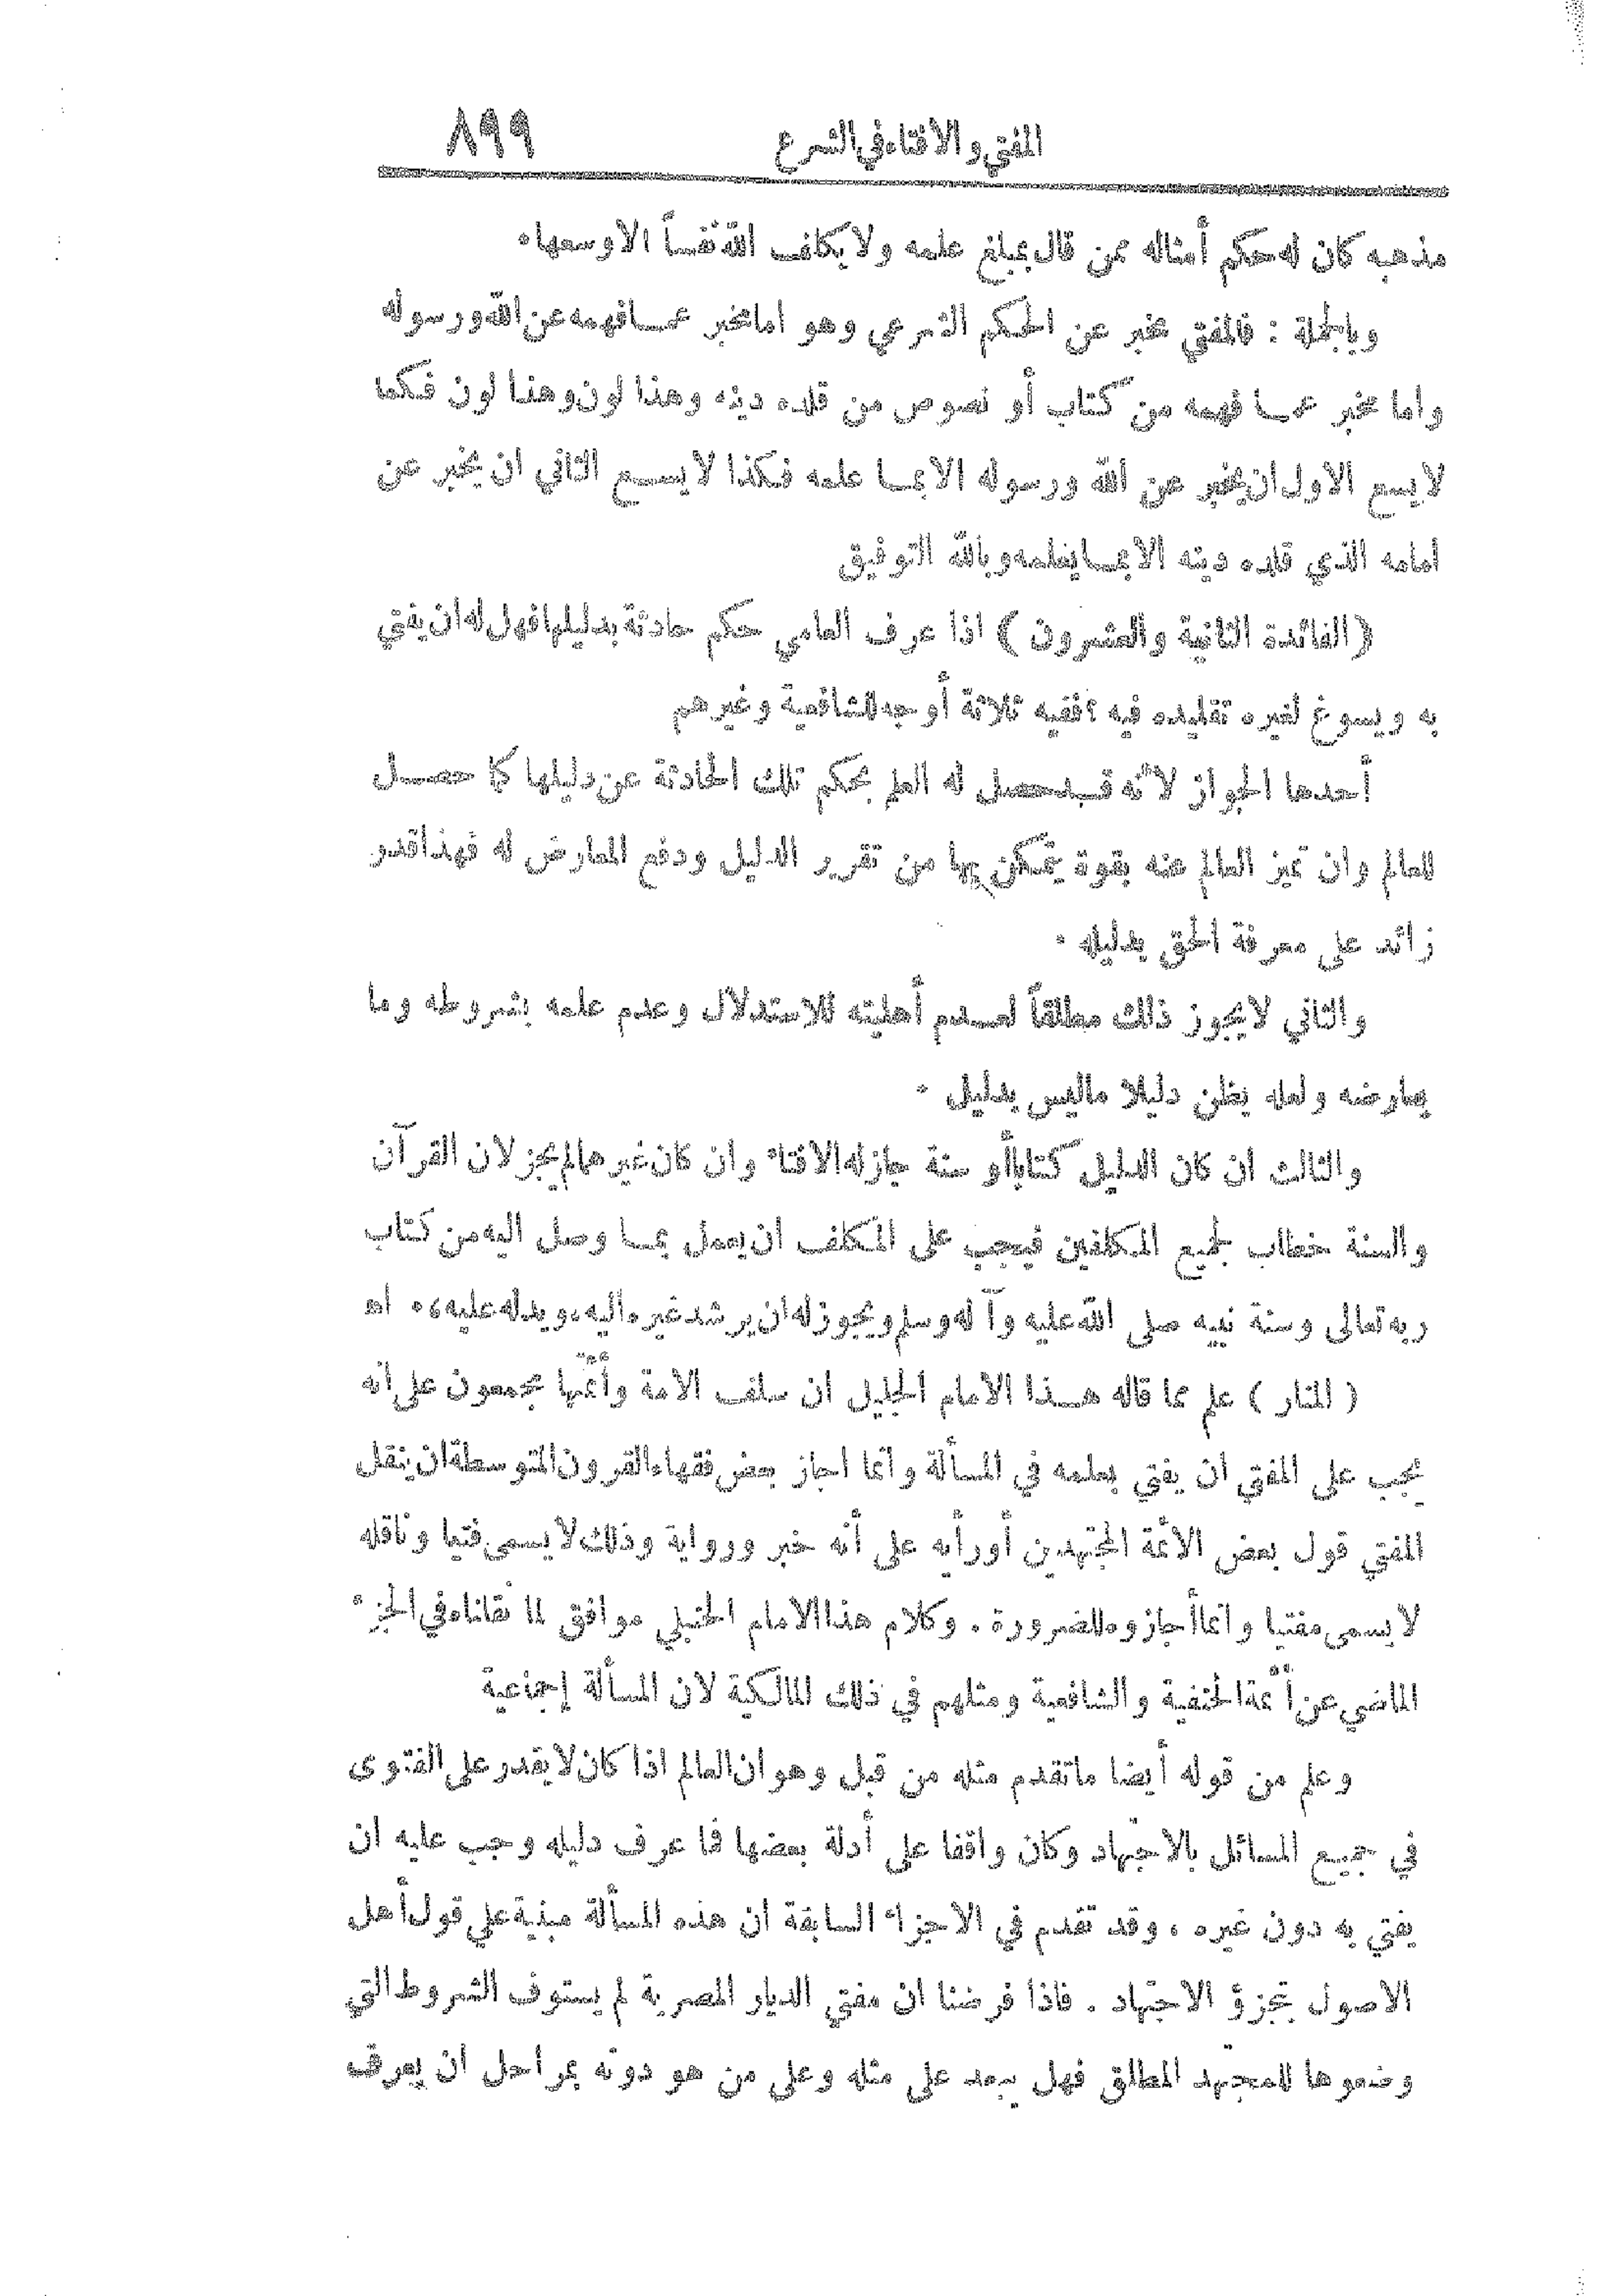 المفتي والافتاء في الشرع ٨٩٩
مذهبه كان له حكم أمثاله ممن قال بمبلغ علمه ولا يكلف الله نفساً الا وسعها.
وبالجملة : فالمفتي مخبر عن الحكم الشرعي وهو اما مخبر عما فهمه عن الله ورسوله
واما مخبر عما فهمه من كتاب أو نصوص من قلده دينه وهذا لون وهذا لون فكما
لا يسع الاول ان يخبر عن الله ورسوله الا بما علمه فكذا لا يسع الثاني ان يخبر عن
امامه الذي قلده دينه الا بما يعلمه وبالله التوفيق
( الفائدة الثانية والعشرون ) اذا عرف العامي حكم حادثة بدليلها فهل له ان يفتي
به ويسوغ لغيره تقليده فيه ؟ ففيه ثلاثة أوجه للشافعية وغيرهم
أحدها الجواز لأنه قد حصل له العلم بحكم تلك الحادثة عن دليلها كما حصل
للعالم وان تميز العالم عنه بقوة يتمكن بها من تقرير الدليل ودفع المعارض له فهذا قدر
زائد على معرفة الحق بدليله .
والثاني لا يجوز ذلك مطلقاً لعدم أهليته للاستدلال وعدم علمه بشروطه وما
يعارضه ولعله يظن دليلا ما ليس بدليل .
والثالث ان كان الدليل كتابا أو سنة جاز له الافتاء وان كان غيرهما لم يجز لان القرآن
والسنة خطاب لجميع المكلفين فيجب على المكلف ان يعمل بما وصل اليه من كتاب
ربه تعالى وسنة نبيه صلى الله عليه وآله وسلم ويجوز له ان يرشد غيره اليه، ويدله عليه، . اهـ
( المنار ) علم مما قاله هذا الامام الجليل ان سلف الامة وأئمتها مجمعون على انه
يجب على المفتي ان يفتي بعلمه في المسألة وانما اجاز بعض فقهاء القرون المتوسطة ان ينقل
المفتي قول بعض الائمة المجتهدين أو رأيه على أنه خبر ورواية وذلك لا يسمى فتيا وناقله
لا يسمى مفتيا وانما أجازوه للضرورة . وكلام هذا الامام الحنبلي موافق لما نقلناه في الجزء
الماضي عن أئمة الحنفية والشافعية ومثلهم في ذلك المالكية لان المسألة إجماعية
وعلم من قوله أيضا ما تقدم مثله من قبل وهو ان العالم اذا كان لا يقدر على الفتوى
في جميع المسائل بالاجتهاد وكان واقفا على أدلة بعضها فما عرف دليله وجب عليه ان
يفتي به دون غيره ، وقد تقدم في الاجزاء السابقة ان هذه المسألة مبنية على قول أهل
الاصول بتجزؤ الاجتهاد . فاذا فرضنا ان مفتي الديار المصرية لم يستوف الشروط التي
وضعوها للمجتهد المطلق فهل يبعد على مثله وعلى من هو دونه بمراحل ان يعرف